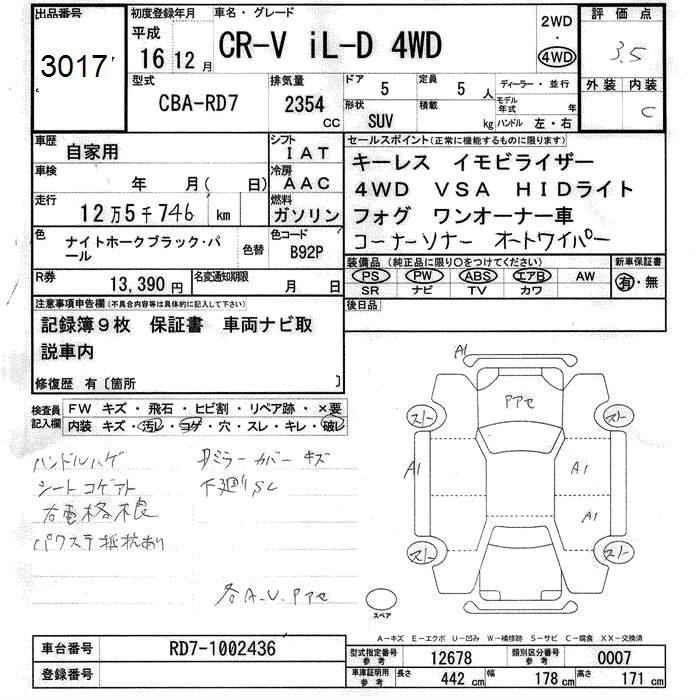 出品番号
3017
初度登録年月
平成
16 12月
車名・グレード
CR-V iL-D 4WD
2WD
・
4WD
評価点
3.5
外装 内装
C
型式
CBA-RD7
排気量
2354
CC
ドア
5
定員
5人
形状
SUV
積載
kg
ディーラー・並行
モデル年式
年
ハンドル 左・右
車歴
自家用
シフト
IAT
車検
年 月( 日)
冷房
AAC
走行
12万5千746 km
燃料
ガソリン
色
ナイトホークブラック・パール
色替
色コード
B92P
R券
13,390円
名変通知期限
月 日
セールスポイント(正常に機能するものに限ります)
キーレス イモビライザー
4WD VSA HIDライト
フォグ ワンオーナー車
コーナーソナー オートワイパー
装備品(純正品に限り○をつけてください)
PS PW ABS エアB AW
SR ナビ TV カワ
新車保証書
有・無
後日品
注意事項申告欄(不具合内容等は具体的に記入して下さい)
記録簿9枚 保証書 車両ナビ取
説車内
修復歴 有〔箇所 〕
検査員記入欄
FW キズ・飛石・ヒビ割・リペア跡・×要
内装 キズ・汚レ・コゲ・穴・スレ・キレ・破レ
ハンドルハゲ
シートコゲアト
右電格不良
パワステ抵抗あり
ミラーカバーキズ
下廻りSC
各A.U.Pアセ
A1
Pアセ
スト
スト
A1
A1
A1
スト
スト
スペア
A-キズ E-エクボ U-凹み W-補修跡 S-サビ C-腐食 XX-交換済
車台番号
RD7-1002436
登録番号
型式指定番号
参考
12678
類別区分番号
参考
0007
車庫証明用
参考
長さ
442 cm
幅
178 cm
高さ
171 cm